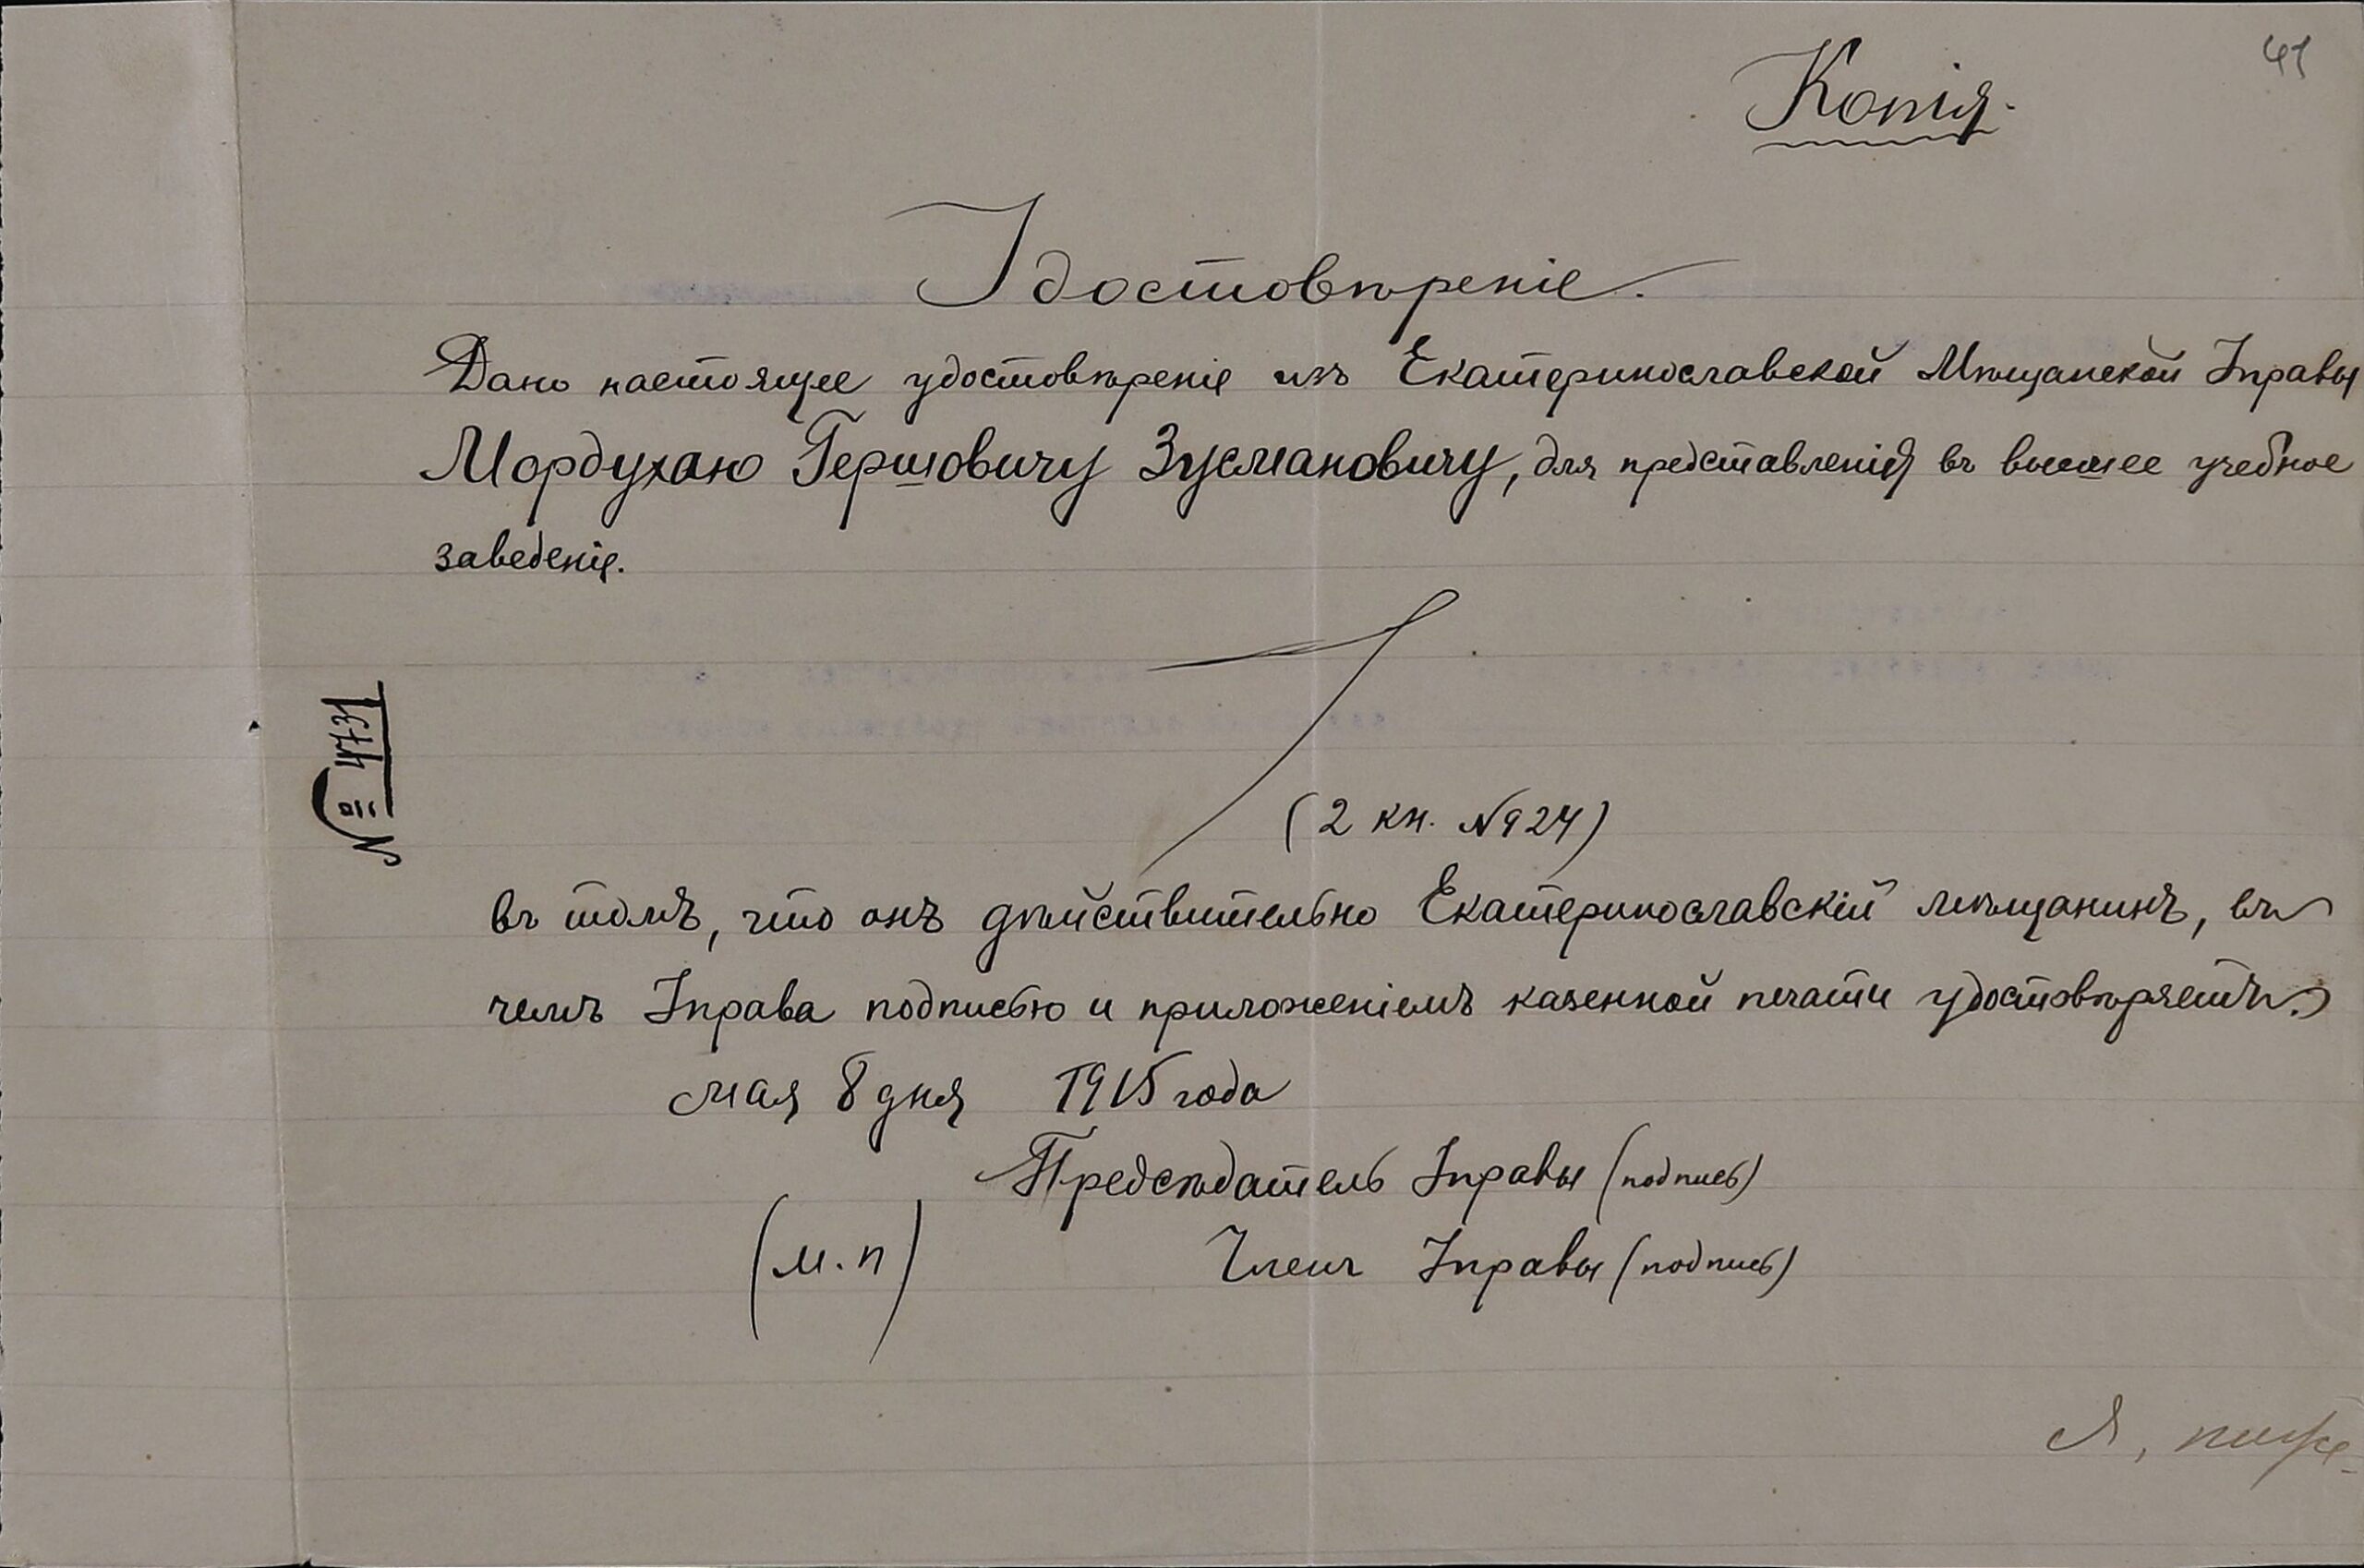 41
Копія.
Удостовѣреніе.
Дано настоящее удостовѣреніе изъ Екатеринославской Мѣщанской Управы
Мордухаю Гершовичу Зусмановичу, для представленія въ высшее учебное
заведеніе.
№ 4731
(2 кн. №924)
въ томъ, что онъ дѣйствительно Екатеринославскій мѣщанинъ, въ
чемъ Управа подписью и приложеніемъ казенной печати удостовѣряетъ.
мая 8 дня 1915 года
Предсѣдатель Управы (подпись)
(М.П)
Членъ Управы (подпись)
Я, ниже-